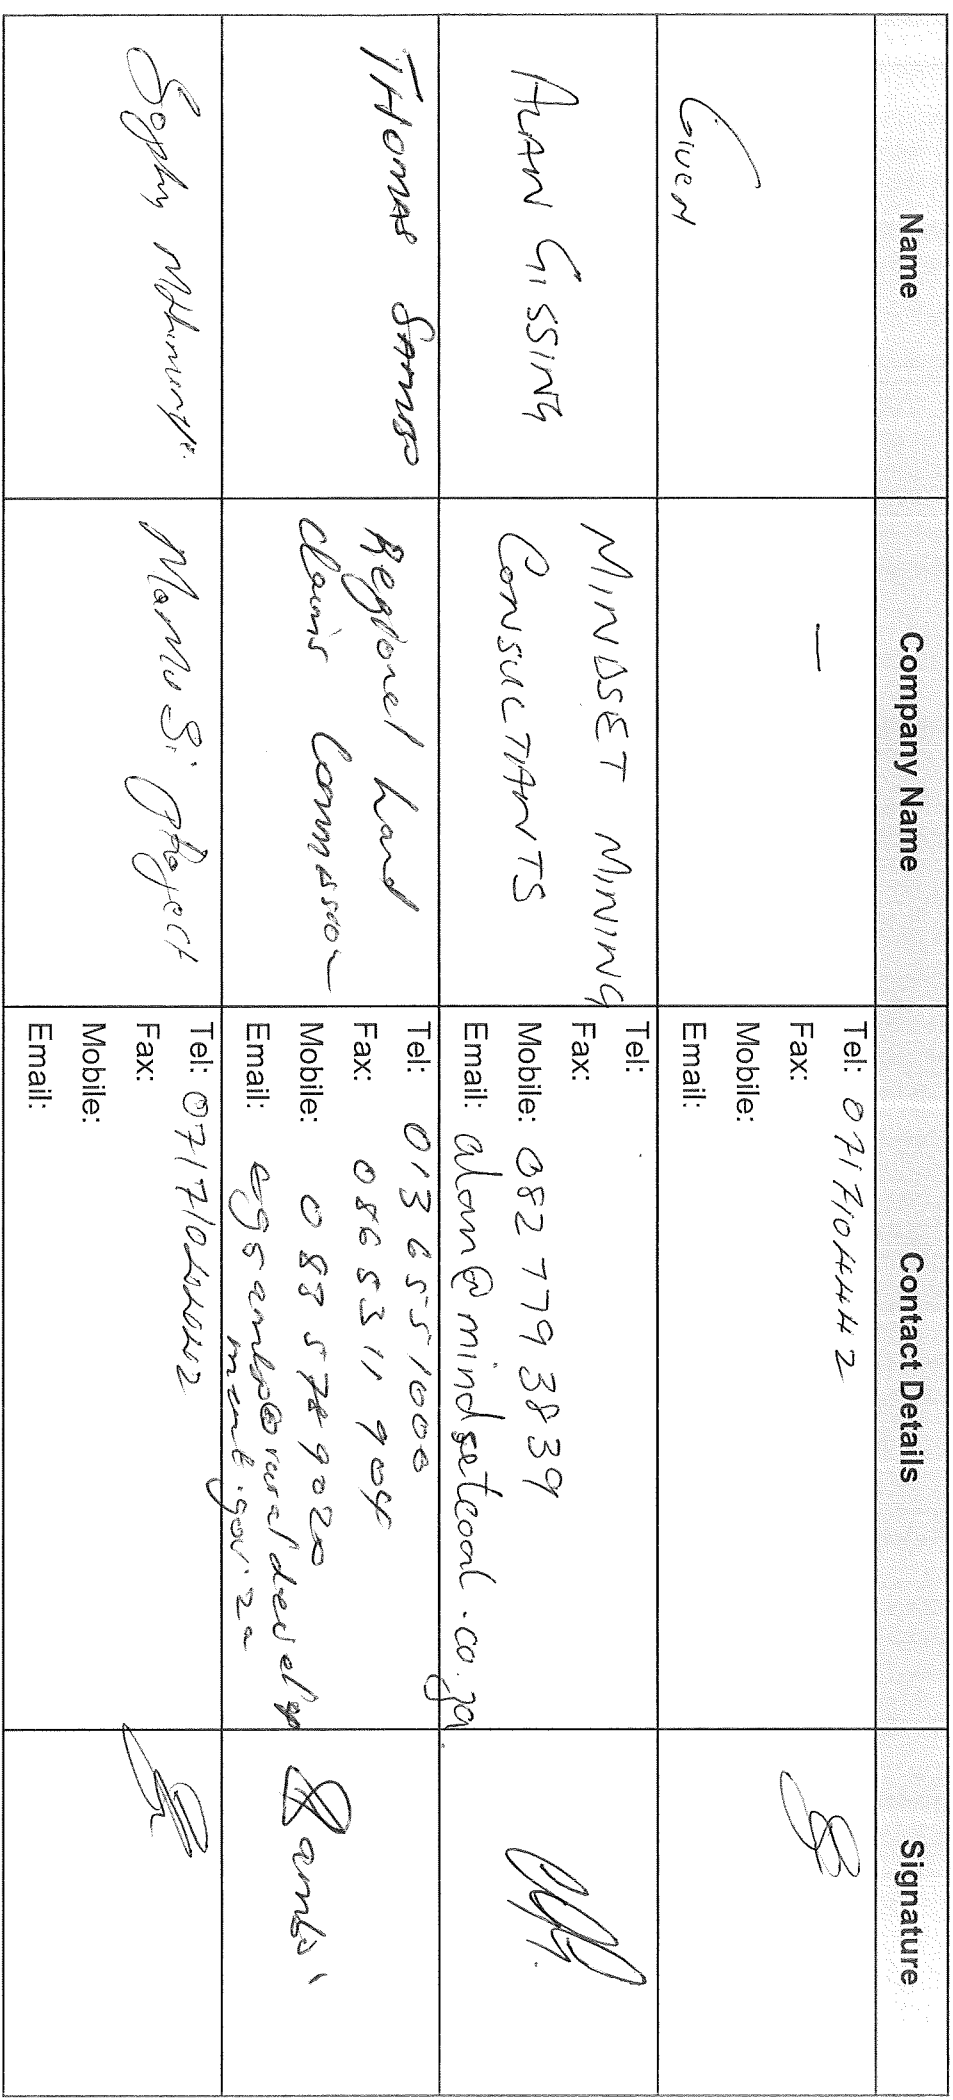 Name Company Name Contact Details Signature
Given — Tel: 0717104442
Fax:
Mobile:
Email:
ALAN GISSING
MINDSET MINING
CONSULTANTS
Tel:
Fax:
Mobile: 082 779 3839
Email: alan@mindsetcoal.co.za
THOMAS
Regional Land
Claims Commission
Tel: 013 655 1000
Fax: 086 531 1 904
Mobile: 083 578 9020
Email:
ment.gov.za
Sophy
Project
Tel: 0717104442
Fax:
Mobile:
Email: